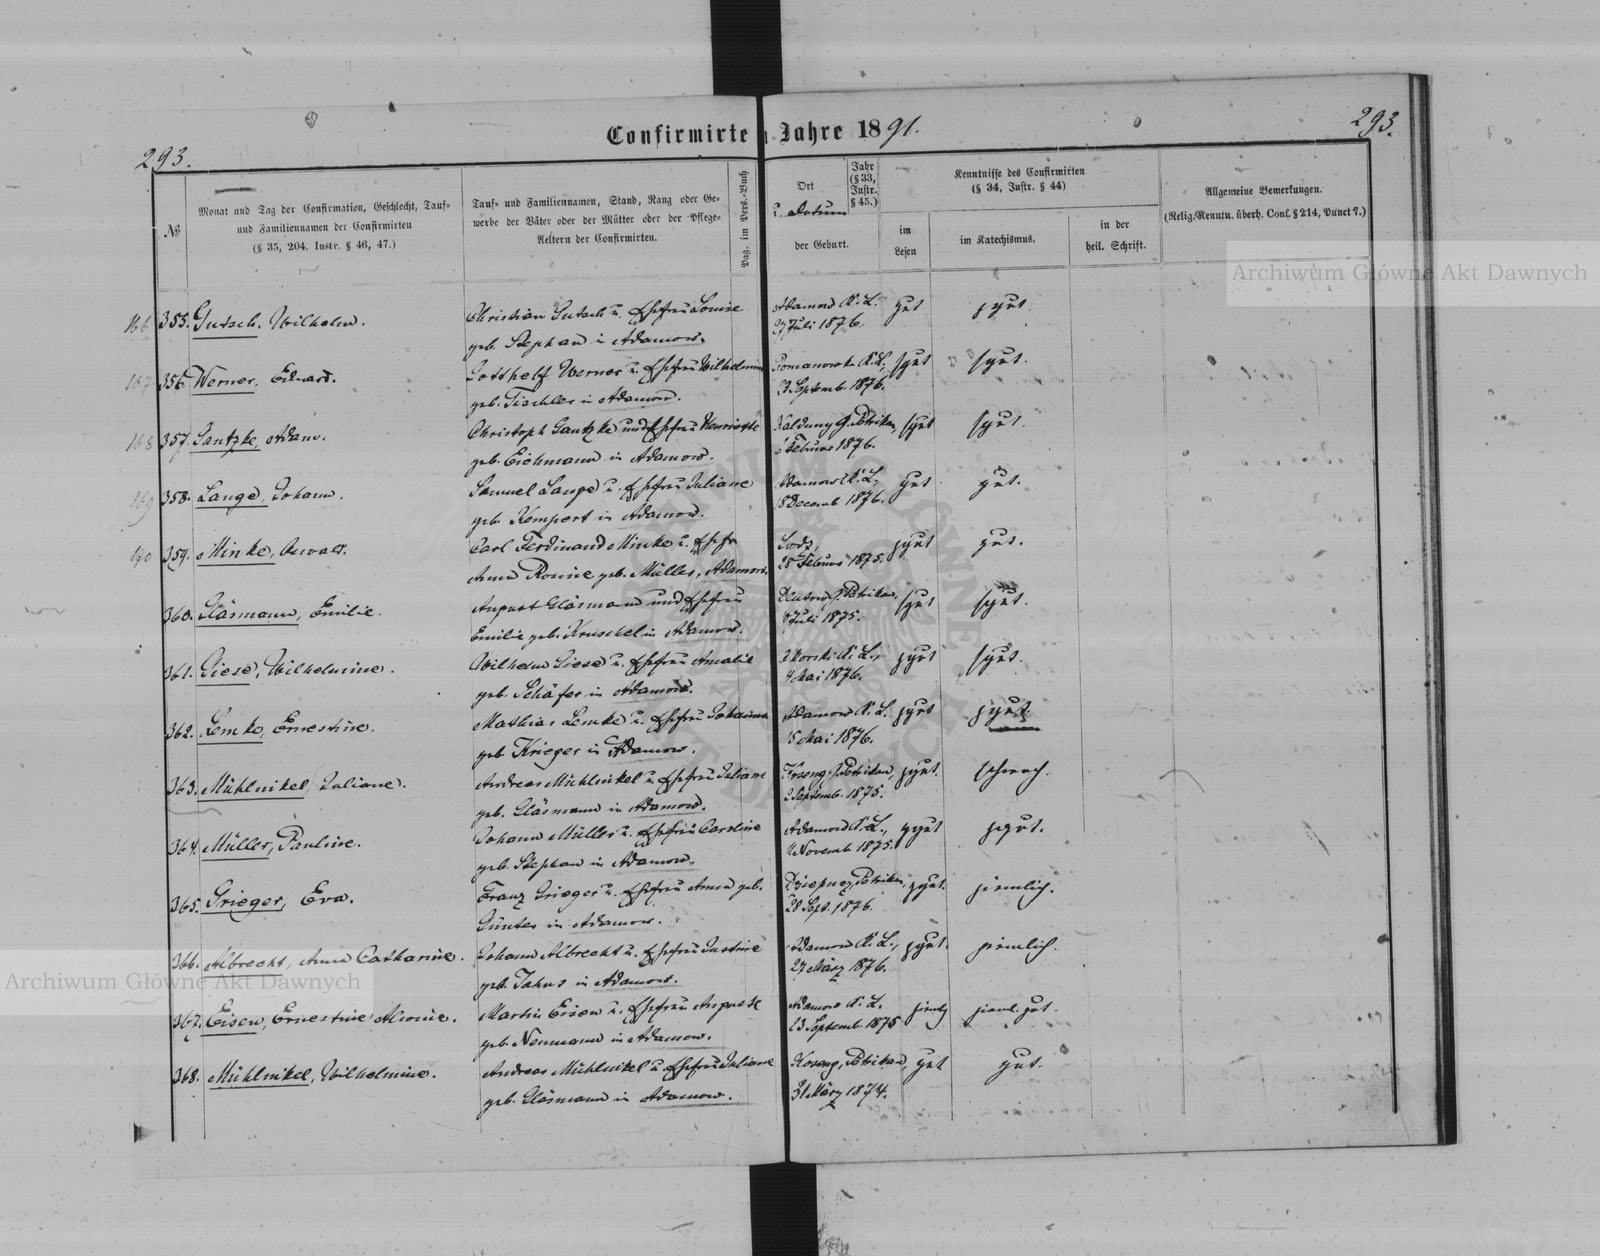 293.
Confirmirte
Jahre 1891.
293.
№
Monat und Tag der Confirmation, Geschlecht, Tauf=
und Familiennamen der Confirmirten
(§ 35, 204. Instr. § 46, 47.)
Tauf= und Familiennamen, Stand, Rang oder Ge=
werbe der Väter oder der Mütter oder der Pflege=
Aeltern der Confirmirten.
Pag. im Pers.-Buch
Ort
u. Datum
der Geburt.
Jahr
(§ 33,
Instr.
§ 45.)
Kenntnisse des Confirmirten
(§ 34, Instr. § 44)
im
Lesen
im Katechismus.
in der
heil. Schrift.
Allgemeine Bemerkungen.
(Relig. Kenntn. überh. Conf. § 214, Punct 7.)
166 355. Gutsch, Wilhelm.
Christian Gutsch u. Ehefrau Louise
geb. Stephan in Adamow.
Adamow K. L.
27 Juli 1876.
gut
gut.
167 356. Werner, Eduard.
Gotthelf Werner u. Ehefrau Wilhelmine
geb. Tischler in Adamow.
Romanowko K. L.,
23 Septemb. 1876.
gut
gut.
168 357. Gantzke, Adam.
Christoph Gantzke und Ehefrau Henriette
geb. Eichmann in Adamow.
Kalduny G. Petrikau,
Februar 1876.
gut
gut.
169 358. Lange, Johann.
Samuel Lange u. Ehefrau Juliane
geb. Kempert in Adamow.
Adamow K. L.,
18 Decemb. 1876.
gut
gut.
170 359. Minke, Oswald.
Carl Ferdinand Minke u. Ehefr
Anna Rosine geb. Müller, Adamow.
Lodz,
28 Februar 1875.
gut
gut.
360. Gläsmann, Emilie.
August Gläsmann und Ehefrau
Emilie geb. Kruschel in Adamow.
Dlutow G. Petrikau,
Juli 1875.
gut
gut.
361. Giese, Wilhelmine.
Wilhelm Giese u. Ehefrau Amalie
geb. Schäfer in Adamow.
K. L.,
4 Mai 1876.
gut
gut.
362. Lemke, Ernestine.
Mathias Lemke u. Ehefrau Johanna
geb. Krieger in Adamow.
Adamow K. L.
15 Mai 1876.
gut
gut
363. Mühlnikel, Juliane.
Andreas Mühlnikel u. Ehefrau Juliane
geb. Gläsmann in Adamow.
G. Petrikau,
2 Septemb. 1875.
gut.
schwach.
364. Müller, Pauline.
Johann Müller u. Ehefrau Caroline
geb. Stephan in Adamow.
Adamow K. L.,
Novemb. 1875.
gut
gut.
365. Grieger, Eva.
Franz Grieger u. Ehefrau Anna geb.
Günter in Adamow.
Petrikau,
28 Sept. 1876.
gut.
ziemlich.
366. Albrecht, Anna Catharine.
Johann Albrecht u. Ehefrau Justine
geb. Jahns in Adamow.
Adamow K. L.,
27 März 1876.
gut.
ziemlich.
367. Eisen, Ernestine Alwine.
Martin Eisen u. Ehefrau Auguste
geb. Neumann in Adamow.
Adamow K. L.
23 Septemb. 1875
ziml.
zieml. gut.
368. Mühlnikel, Wilhelmine.
Andreas Mühlnikel u. Ehefrau Juliane
geb. Gläsmann in Adamow.
Petrikau,
31 März 1874.
gut
gut.
Archiwum Główne Akt Dawnych
Archiwum Główne Akt Dawnych